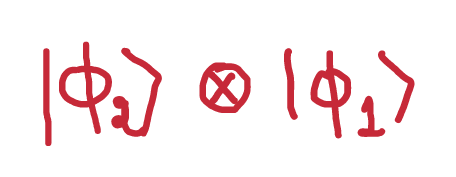 |ϕ₂⟩ ⊗ |ϕ₁⟩